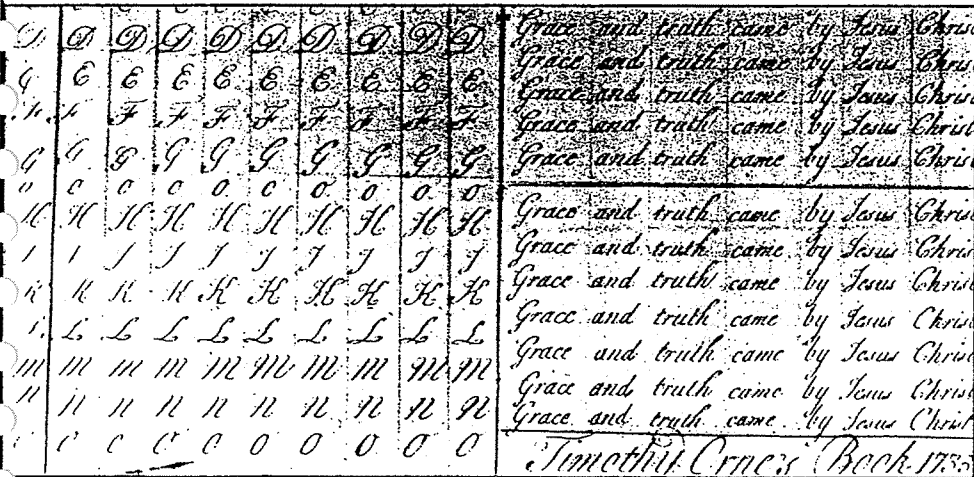 D D D D D D D D D D
E E E E E E E E E
F F F F F F F F F F
G G G G G G G G G G
o o o o o o o o o o
H H H H H H H H H H
J J J J J J J J J J
K K K K K K K K K K
L L L L L L L L L
M M M M M M M M M M
N N N N N N N N N N
O O O O O O O O O
Grace and truth came by Jesus Chris
Grace and truth came by Jesus Chris
Grace and truth came by Jesus Chris
Grace and truth came by Jesus Chris
Grace and truth came by Jesus Chris
Grace and truth came by Jesus Chris
Grace and truth came by Jesus Chris
Grace and truth came by Jesus Chris
Grace and truth came by Jesus Chris
Grace and truth came by Jesus Chris
Grace and truth came by Jesus Chris
Grace and truth came by Jesus Christ
Timothy Orne's Book